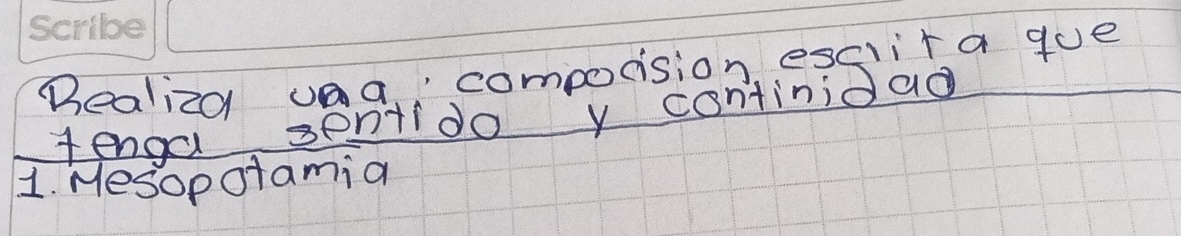 Scribe
Realiza una compocision escrita que
tenga sentido y continidad
1. Mesopotamia